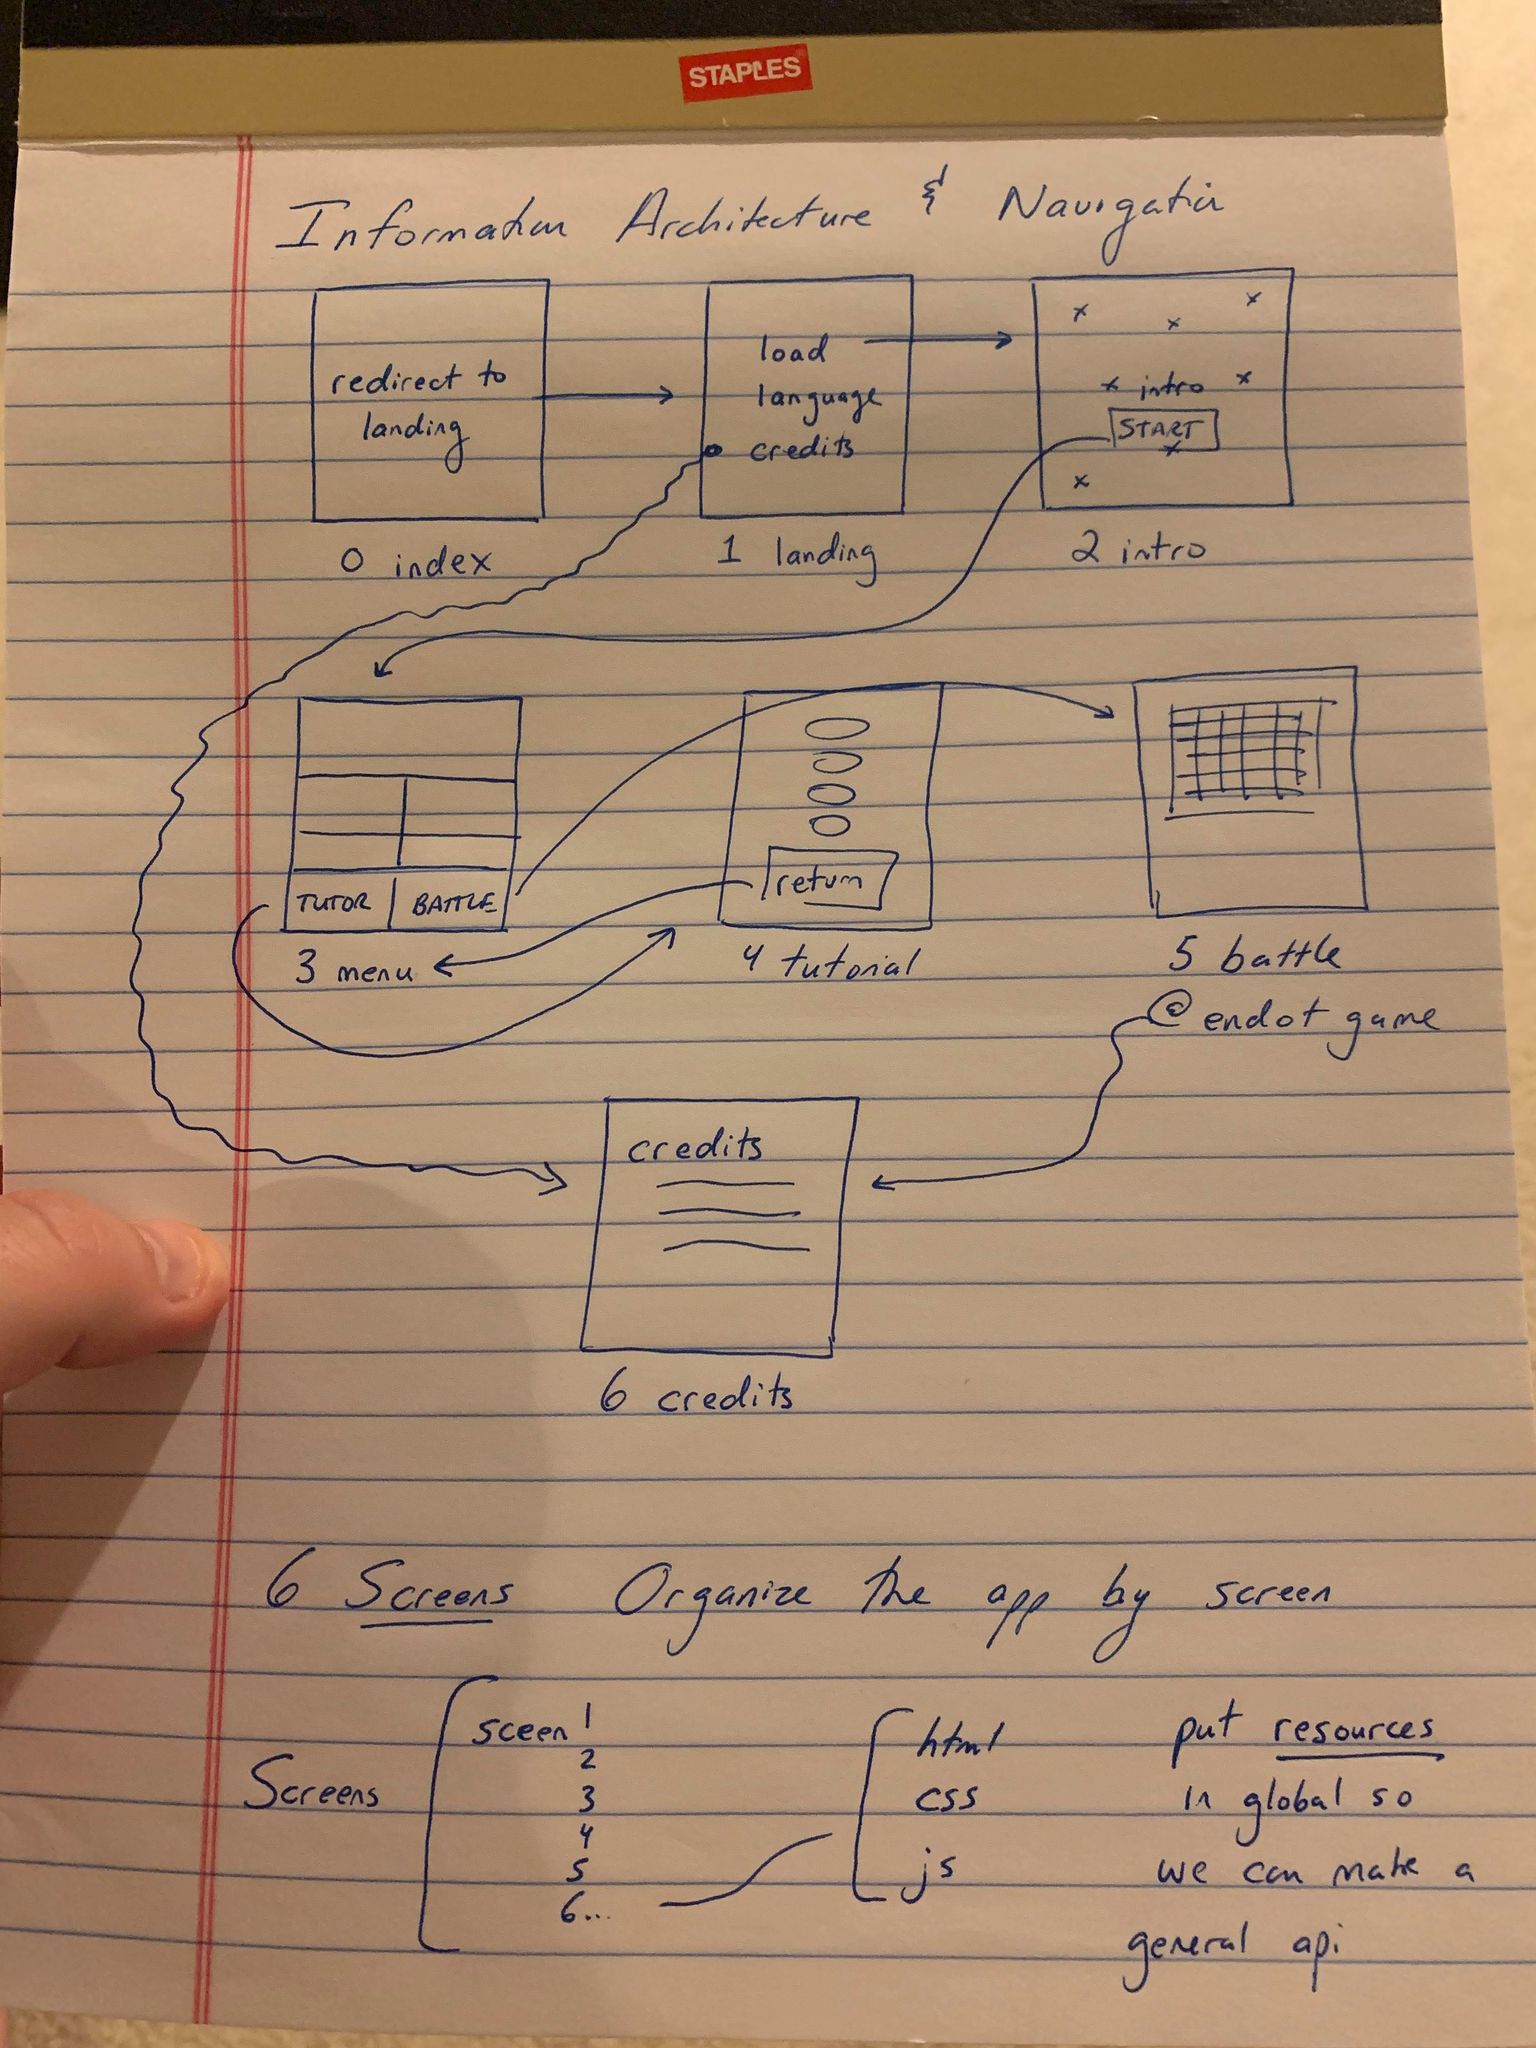 STAPLES
Information Architecture & Navigation
redirect to
landing
0 index
load
language
credits
1 landing
intro
START
2 intro
TUTOR BATTLE
3 menu
return
4 tutorial
5 battle
@ end of game
credits
6 credits
6 Screens Organize the app by screen
Screens
sceen 1
2
3
4
5
6...
html
css
js
put resources
in global so
we can make a
general api